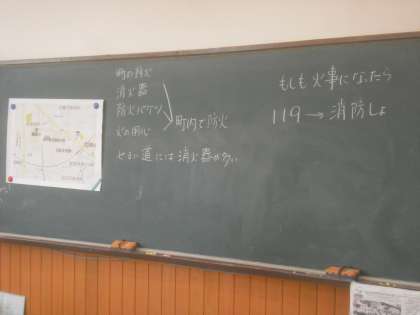 町の防火
消火器
防火バケツ
火の用心
町内で防火
せまい道には消火器が多い
もしも火事になったら
119→消防しょ